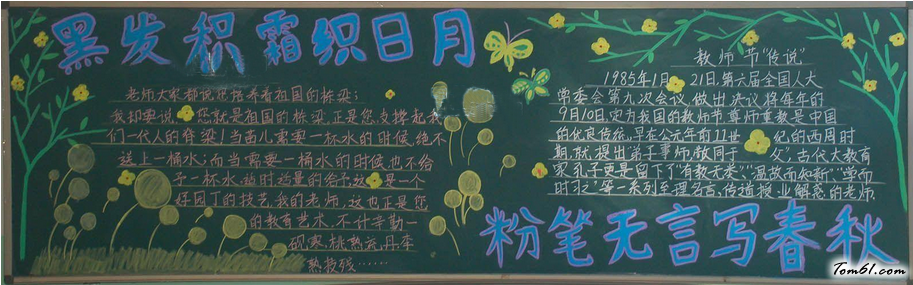 黑发积霜织日月
老师大家都说您培养着祖国的栋梁;
我却要说 您就是祖国的栋梁.正是您支撑起我
们一代人的脊梁!当苗儿需要一杯水的时候,绝不
送上一桶水;而当需要一桶水的时候也不给
予一杯水.适时适量的给予,这 是一个
好园丁的技艺.我的老师,这也正是您
的教育艺术.不计辛勤一
砚寒,桃熟流丹李
熟枝残……
教师节"传说"
1985年1月 21日,第六届全国人大
常委会第九次会议,做出决议将每年的
9月10日,定为我国的教师节.尊师重教是中国
的优良传统,早在公元年前11世 纪的西周时
期,就提出"弟子事师,敬同于 父",古代大教育
家孔子更是留下了"有教无类","温故而知新""学而
时习之"等一系列至理名言,传道授业解惑的老师.
粉笔无言写春秋
Tom61.com